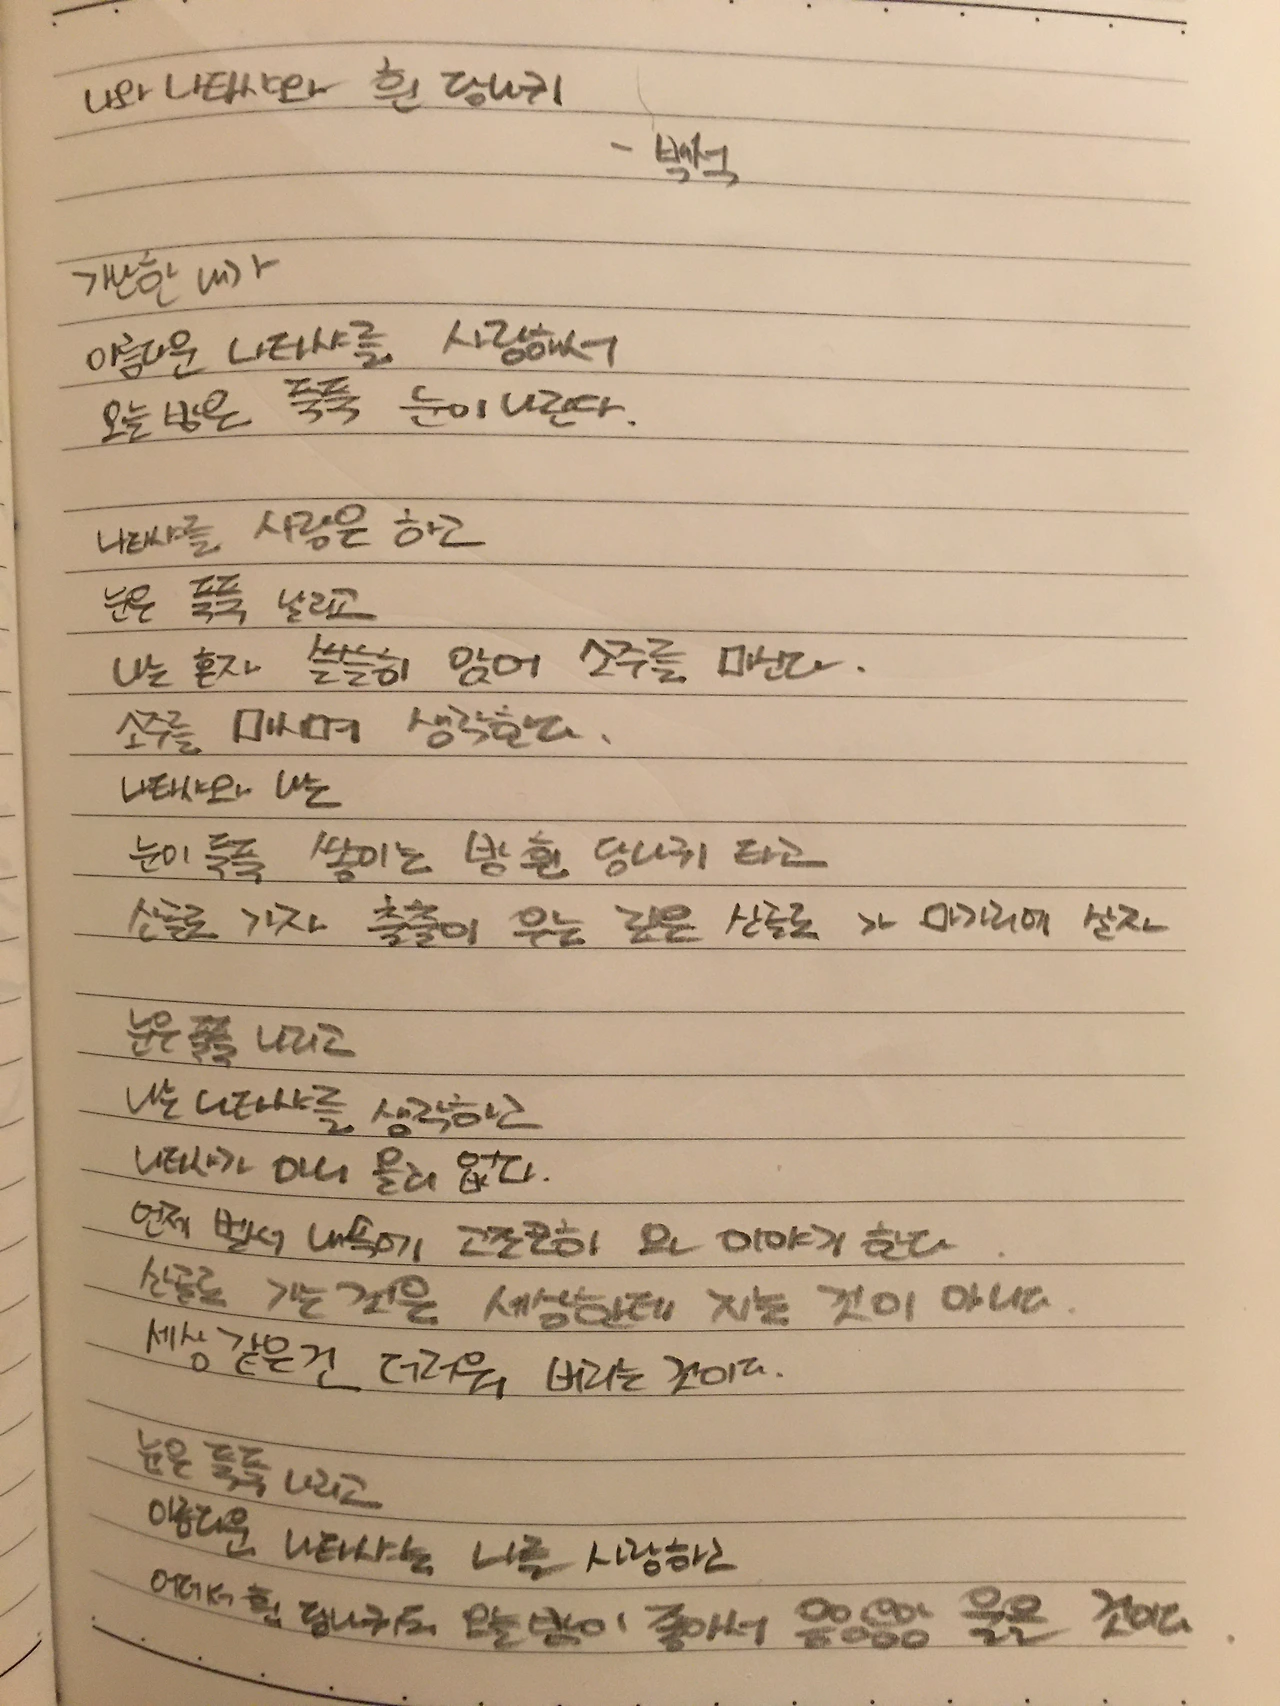 나와 나타샤와 흰 당나귀
- 백석
가난한 내가
아름다운 나타샤를 사랑해서
오늘밤은 푹푹 눈이 나린다.
나타샤를 사랑은 하고
눈은 푹푹 날리고
나는 혼자 쓸쓸히 앉어 소주를 마신다.
소주를 마시며 생각한다.
나타샤와 나는
눈이 푹푹 쌓이는 밤 흰 당나귀 타고
산골로 가자 출출이 우는 깊은 산골로 가 마가리에 살자
눈은 푹푹 나리고
나는 나타샤를 생각하고
나타샤가 아니 올리 없다.
언제 벌써 내속에 고조곤히 와 이야기 한다
산골로 가는 것은 세상한테 지는 것이 아니다.
세상 같은 건 더러워 버리는 것이다.
눈은 푹푹 나리고
아름다운 나타샤는 나를 사랑하고
어데서 흰 당나귀도 오늘밤이 좋아서 응앙응앙 울을 것이다.